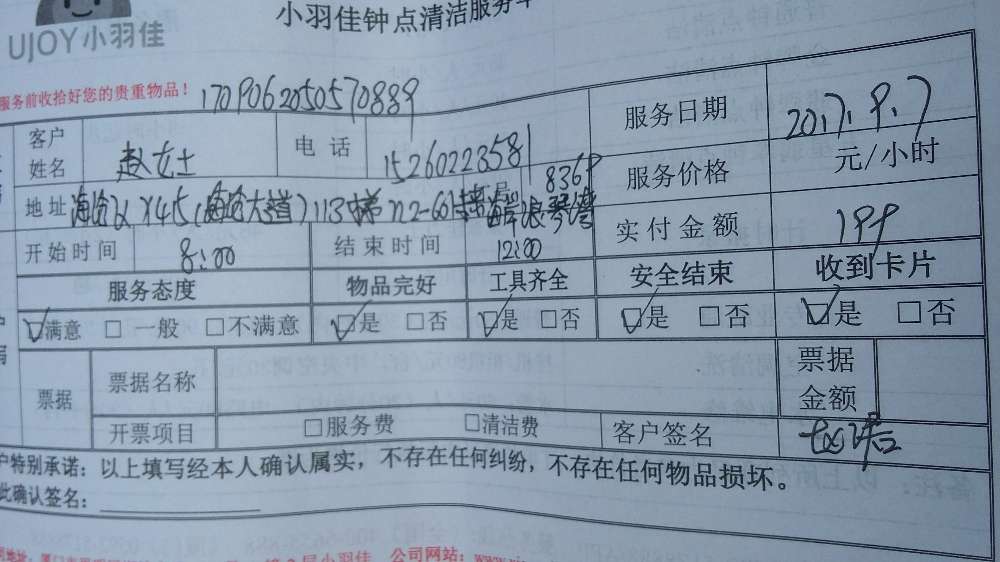 UJOY小羽佳
小羽佳钟点清洁服务单
服务前收拾好您的贵重物品！ 1709062050570889
客户姓名 赵女士 电话 15260223581 服务日期 2017.9.7
地址 海沧区 113 海岸浪琴湾 服务价格 元/小时
开始时间 8:00 结束时间 12:00 实付金额 199
服务态度 物品完好 工具齐全 安全结束 收到卡片
满意 □一般 □不满意 是 □否 是 □否 是 □否 是 □否
票据 票据名称 票据金额
开票项目 □服务费 □清洁费 客户签名
户特别承诺：以上填写经本人确认属实，不存在任何纠纷，不存在任何物品损坏。
此确认签名：
小羽佳 公司网站：